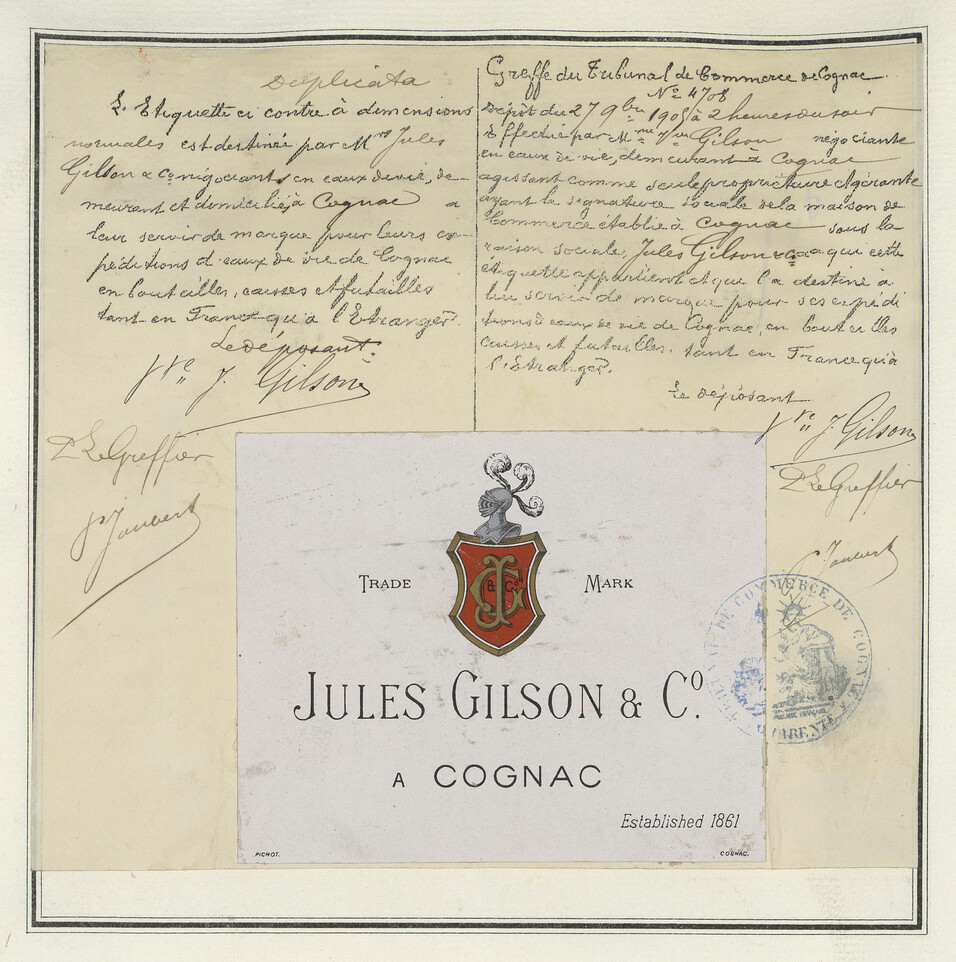 Duplicata
L'Etiquette ci contre à dimensions
normales est destinée par Mrs Jules
Gilson & Co négociants en eaux de vie, de-
meurant et domiciliés à Cognac a
leur servir de marque pour leurs ex-
péditions d'eaux de vie de Cognac
en bouteilles, caisses et futailles
tant en France qu'à l'Etranger.
Le déposant
Vve J. Gilson
Le Greffier
Joubert
Greffe du Tribunal de Commerce de Cognac
No 4708
Dépôt du 27 9bre à 2 heures du soir
Effectué par Mme Vve Gilson négociante
en eaux de vie, demeurant à Cognac
agissant comme seule propriétaire et gérante
ayant la signature sociale de la maison de
Commerce établie à Cognac sous la
raison sociale, Jules Gilson & Co a qui cette
étiquette appartient et qui l'a destiné à
lui servir de marque pour ses expédi
tions d'eaux de vie de Cognac, en bouteilles
caisses et futailles, tant en France qu'à
l'Etranger.
Le déposant
Vve J. Gilson
Le Greffier
Joubert
TRADE MARK
J & Co G
JULES GILSON & Co.
A COGNAC
Established 1861
PICHOT. COGNAC.
TRIBUNAL DE COMMERCE DE COGNAC
CHARENTE